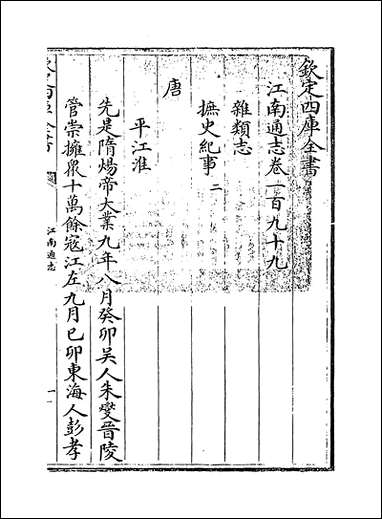 欽定四庫全書
江南通志卷一百九十九
雜類志
摭史紀事二
唐
平江淮
先是隋煬帝大業九年八月癸卯吳人朱燮晉陵
管崇擁衆十萬餘寇江左九月已卯東海人彭孝
江南通志
一